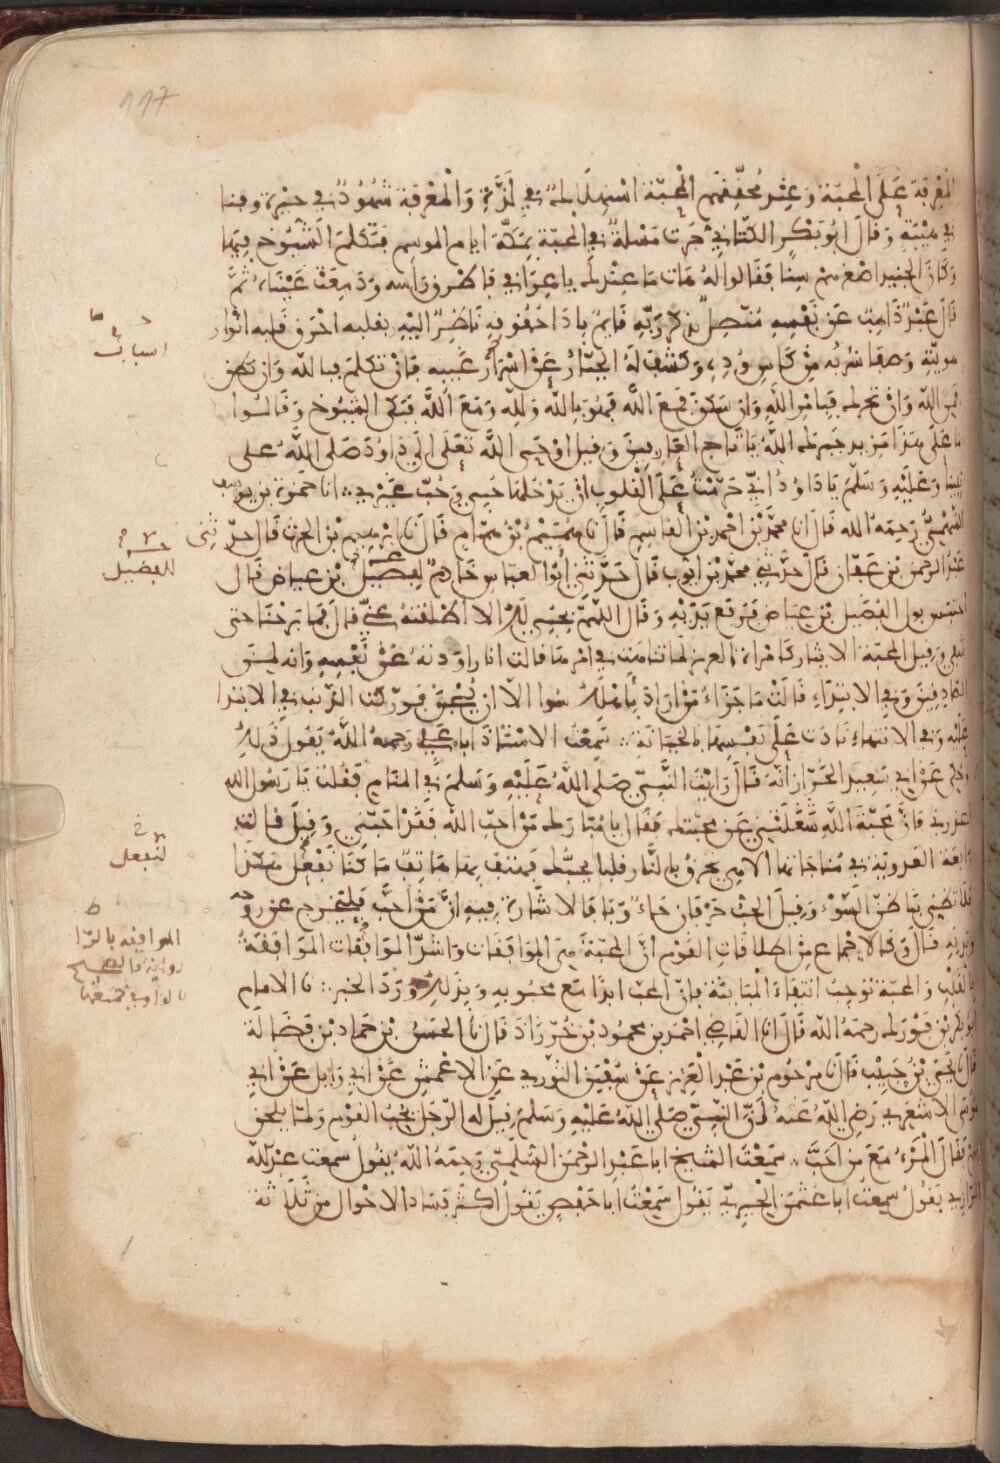 117
المعرفة على المحبة وعند محققيهم المحبة استهلاك في لذة والمعرفة شهود في حيرة وفنا
في هيبة وقال ابو بكر الكتاني جرت مسئلة في المحبة بمكة ايام الموسم فتكلم الشيوخ فيها
وكان الجنيد اصغرهم سنا فقالوا له هات ما عندك يا عراقي فاطرق راسه ودمعت عيناه ثم
قال عبد ذاهب عن نفسه متصل بذكر ربه قايم باداء حقوقه ناظر اليه بقلبه احرق قلبه انوار
هويته وصفا شربه من كاس وده وكشف له الجبار عن استار غيبه فان تكلم فبالله وان نطق
فعن الله وان تحرك فبامر الله وان سكن فمع الله فهو بالله ولله ومع الله فبكى الشيوخ وقالوا
ما على هذا مزيد جبرك الله يا تاج العارفين وقيل اوحى الله تعلى الى داود صلى الله على
نبينا وعليه وسلم يا داود اني حرمت على القلوب ان يدخلها حبي وحب غيري انا حمزة بن يوسف
السهمي رحمه الله قال انا محمد بن احمد بن القاسم قال نا هميم بن همام قال نا ابرهيم بن الحرث قال حدثني
عبد الرحمن بن عفان قال حدثني محمد بن ايوب قال حدثني ابو العباس خادم الفضيل بن عياض قال
احتبس بول الفضيل بن عياض فرفع يديه وقال اللهم بحبي لك الا اطلقته عني قال فما برحنا حتى
شفي وقيل المحبة الايثار كامراة العزيز لما تناهت في امرها قالت انا راودته عن نفسه وانه لمن
الصادقين وفي الابتداء قالت ما جزاء من اراد باهلك سوا الا ان يسجن فوركت الذنب في الابتدا
عليه وفي الانتهاء نادت على نفسها بالخيانة سمعت الاستاذ ابا علي رحمه الله يقول ذلك
وحكي عن ابي سعيد الخراز انه قال رايت النبي صلى الله عليه وسلم في المنام فقلت يا رسول الله
اعذرني فان محبة الله شغلتني عن محبتك فقال يا مبارك من احب الله فقد احبني وقيل قالت
رابعة العدوية في مناجاتها الاهي تحرق بالنار قلبا يحبك فهتف بها هاتف ما كنا نفعل هكذا
فلا تظني بنا ظن السوء وقيل الحب حرفان حاء وبا فالاشارة فيه ان من احب فليخرج عن روحه
وبدنه قال وكالاجماع من اطلاقات القوم ان المحبة هي الموافقات واشد الموافقات الموافقة
بالقلب والمحبة توجب انتفاء المباينة فان المحب ابدا مع محبوبه وبذلك ورد الخبر نا الامام
ابو بكر بن فورك رحمه الله قال انا القاضي احمد بن محمود بن خرزاذ قال نا الحسن بن حماد بن فضالة
قال نا يحيى بن حبيب قال نا مرحوم بن عبد العزيز عن سفين الثوري عن الاعمش عن ابي وايل عن ابي
موسى الاشعري رضي الله عنه ان النبي صلى الله عليه وسلم قيل له الرجل يحب القوم ولما يلحق
بهم فقال المرء مع من احب سمعت الشيخ ابا عبد الرحمن السلمي رحمه الله يقول سمعت عبد الله
الرازي يقول سمعت ابا عثمن الحيري يقول سمعت ابا حفص يقول اكثر فساد الاحوال من ثلاثة
اسباب
للفضيل
لنفعل
الموافقة بالرا
رواية
بالواو